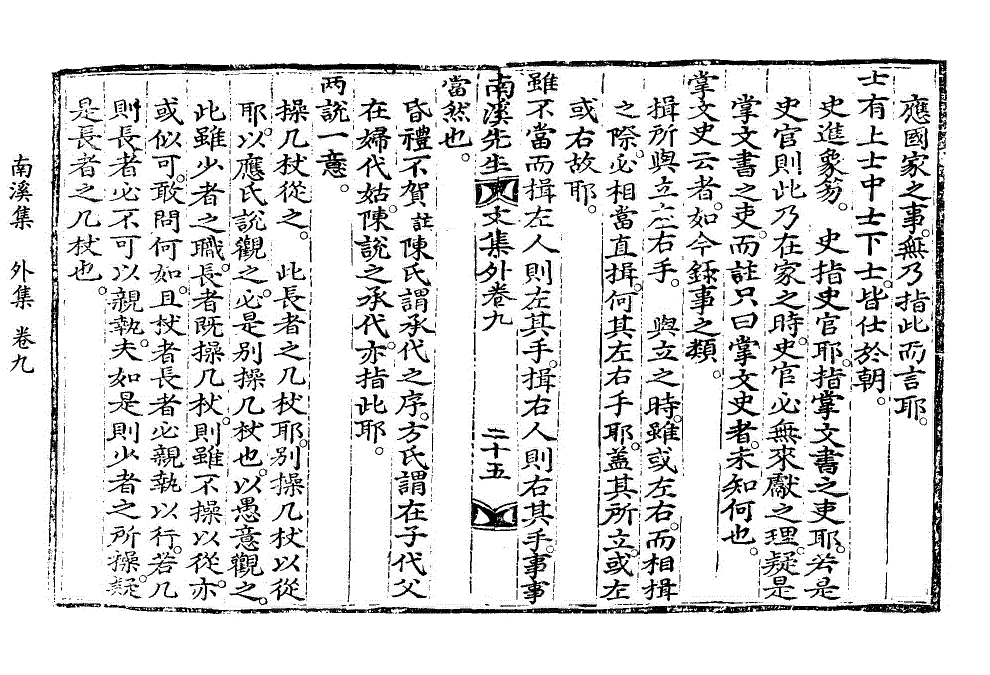 應國家之事。無乃指此而言耶。
士有上士中士下士。皆仕於朝。
史進象笏。　史指史官耶。指掌文書之吏耶。若是
史官則此乃在家之時。史官必無來獻之理。疑是
掌文書之吏。而註只曰掌文史者。未知何也。
掌文史云者。如今錄事之類。
揖所與立左右手。　與立之時。雖或左右。而相揖
之際。必相當直揖。何其左右手耶。蓋其所立。或左
或右故耶。
雖不當而揖左人則左其手。揖右人則右其手。事事
南溪先生文集外卷九　二十五
當然也。
昏禮不賀。註陳氏謂承代之序。方氏謂在子代父
在婦代姑。陳說之承代。亦指此耶。
兩說一意。
操几杖從之。　此長者之几杖耶。別操几杖以從
耶。以應氏說觀之。必是別操几杖也。以愚意觀之。
此雖少者之職。長者旣操几杖。則雖不操以從。亦
或似可。敢問何如。且杖者長者必親執以行。若几
則長者必不可以親執。夫如是則少者之所操。疑
是長者之几杖也。
南溪集　外集　卷九